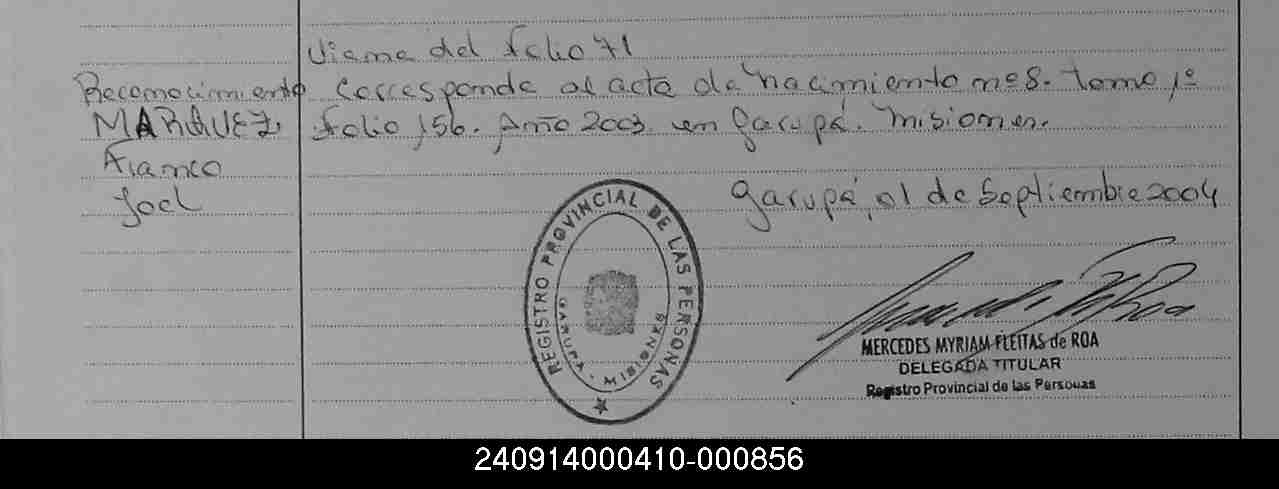 Viene del folio 71
Reconocimiento Corresponde al acta de nacimiento nº 8. tomo 1º
MARQUEZ folio 156. Año 2003. en Garupá. Misiones.
Franco
Joel
Garupá, 01 de Septiembre 2004
REGISTRO PROVINCIAL DE LAS PERSONAS
GARUPA - MISIONES
MERCEDES MYRIAM FLEITAS de ROA
DELEGADA TITULAR
Registro Provincial de las Personas
240914000410-000856